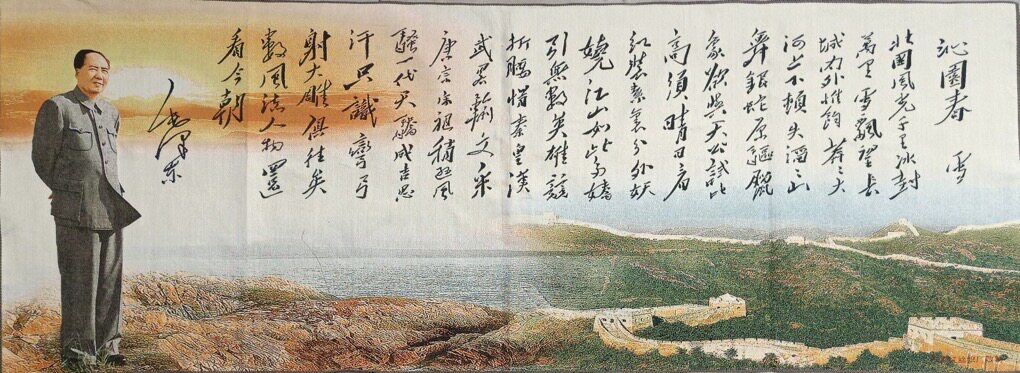 沁園春 雪
北國風光千里冰封
萬里雪飄望長
城内外惟餘莽々大
河上下頓失滔々山
舞銀蛇原驅臘
象欲與天公試比
高須晴日看
紅裝素裹分外妖
嬈江山如此多嬌
引無數英雄競
折腰惜秦皇漢
武畧輸文采
唐宗宋祖稍遜風
騷一代天驕成吉思
汗只識彎弓
射大雕俱往矣
數風流人物還
看今朝
毛澤東